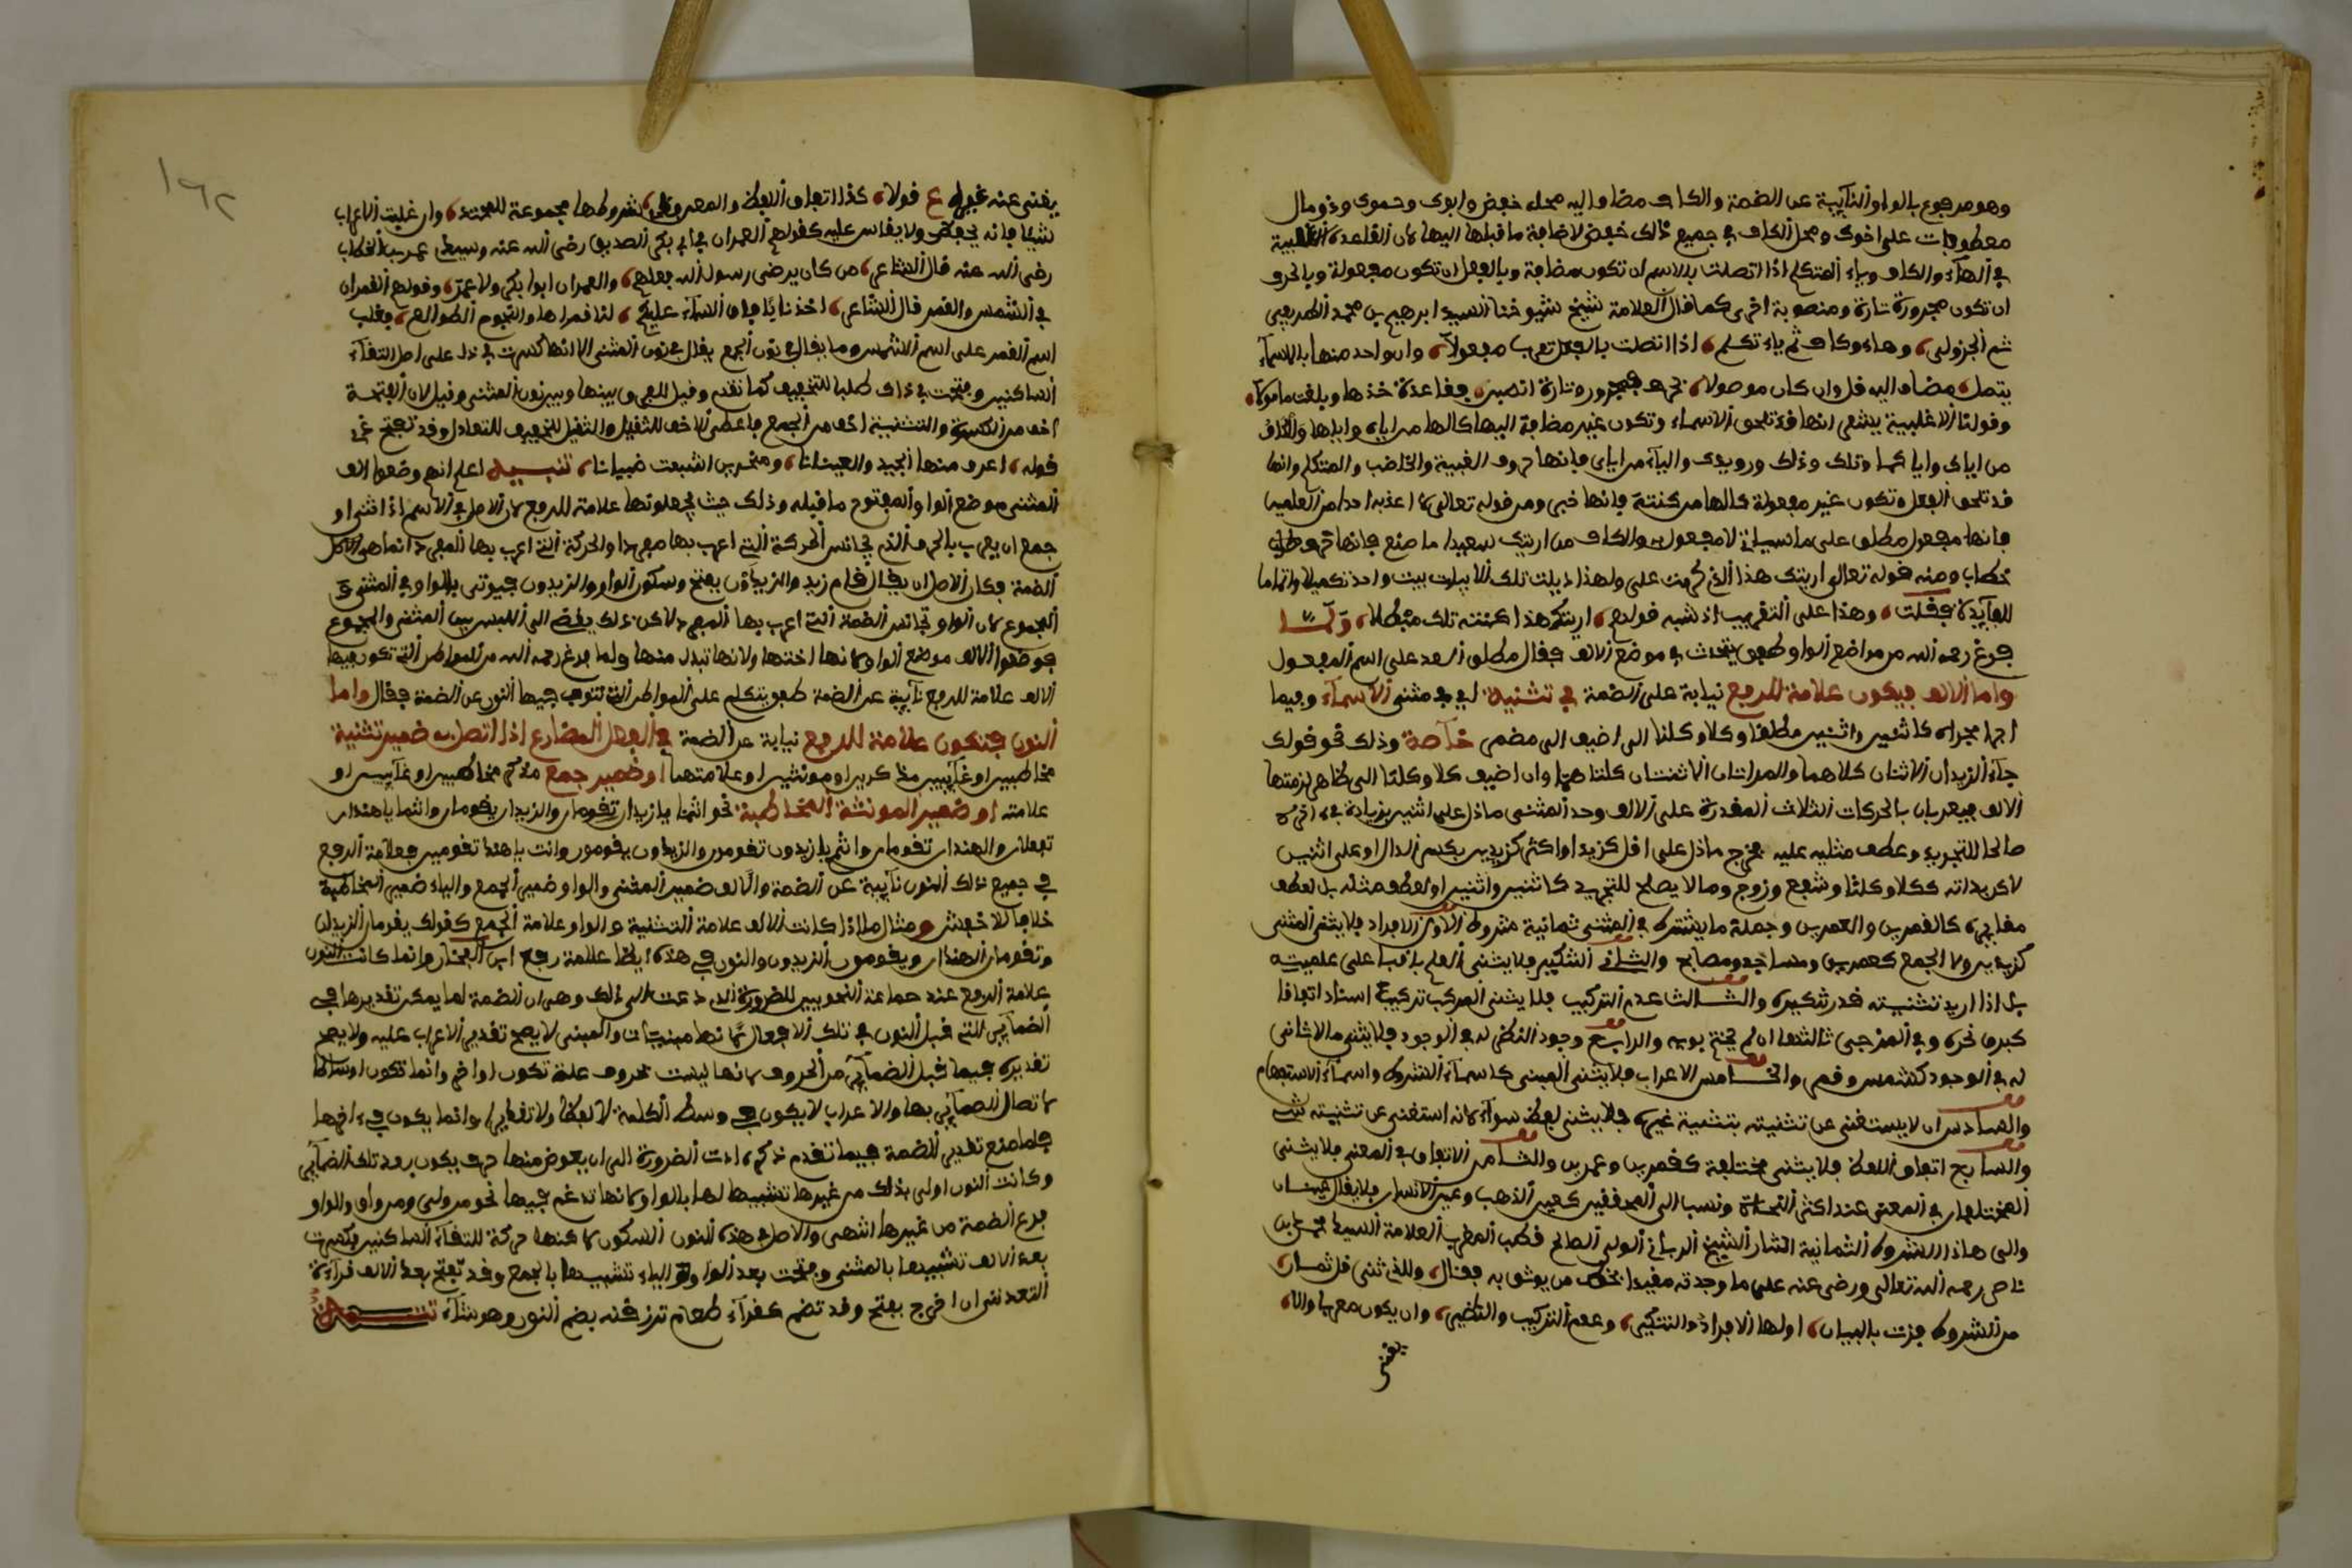 وهو مرفوع بالواو النآيبة عن الضمة والكاف مضاف اليه محله خفض وابوك وحموك وذو مال
معطوفات على اخوك ومحل الكاف في جميع ذالك خفض لاضافة ما قبلها اليها لان القاعدة الاغلبية
في الهآء والكاف وياء المتكلم اذا اتصلت بالاسم ان تكون مضافة وبالفعل ان تكون مفعولة وبالحرف
ان تكون مجرورة تارة ومنصوبة اخرى كما قال العلامة شيخ شيوخنا السيد ابرهيم بن محمد
ثم الجزولى وهاء وكاف ثم ياء تكلم اذا اتصلت بالفعل تعرب مفعولا وان واحد منها بالاسمآء
يتصل مضاف اليه قل وان كان موصولا بحرف فمجرور تارة انصبن فقاعدة خذها وبلغت مامولا
وقولنا الاغلبية يقتضى انها قد تلحق الاسماء وتكون غير مضافة اليها كالها من اياه واياها والكاف
من اياك واياكما وتلك وذلك ورويدك واليآء من اياى فانها حروف الغيبة والخطاب والمتكلم وانها
قد تلحق الفعل وتكون غير مفعولة كالها من كنته فانها خبر ومن قوله تعالى لا اعذبه احدا من العلمين
فانها مفعول مطلق على ما سياتى لا مفعول به والكاف من اريتك سعيدا ما صنع فانها حرف
خطاب ومنه قوله تعالى اريتك هذا الذى كرمت على ولهذا ذيلت تلك الابيات ببيت واحد تكميلا واتماما
للفآيدة فقلت وهذا على التقريب اذ شبه قولهم اريتك هذا كنته تلك مبطلا ولما
فرغ رحمه الله من مواضع الواو طفق يتحدث في موضع الالف فقال مطلق السعد على اسم المفعول
واما الالف فيكون علامة للرفع نيابة على الضمة في تثنية اى في مثنى الاسمآء وفيما
اجرا مجراه كاثنين واثنتين مطلقا وكلا وكلتا الى اضيف الى مضمر خآصة وذلك نحو قولك
جآء الزيدان الاثنان كلاهما والمراتان الاثنتان كلتاهما وان اضيف كلا وكلتا الى ظاهر لزمتها
الالف فيعربان بالحركات الثلاث المقدرة على الالف وحد المثنى ما دل على اثنين بزيادة في اخره
صالحا للتجريد وعطف مثليه عليه فخرج ما دل على اقل كزيد او اكثر كزيدين بكسر الدال او على اثنين
لاكن بذاته ككلا وكلتا وشفع وزوج وما لا يصلح للتجريد كاثنين واثنتين او لعطف مثله بل لعطف
مغايره كالقمرين والعمرين وجملة ما يشترط في المثنى ثمانية شروط الاول الافراد فلا يثنى المثنى
كزيدين ولا الجمع كعمرين ومساجد ومصابح والثانى التنكير فلا يثنى العلم باقيا على علميته
بل اذا اريد تثنيته قدر تنكيره والثالث عدم التركيب فلا يثنى المركب تركيب اسناد اتفاقا
كبرق نحره وفي المزجى ثالثها ان لم يختم بويه والرابع وجود النظير له في الوجود فلا يثنى ما لا ثانى
له في الوجود كشمس وقمر والخامس الاعراب فلا يثنى المبنى كاسمآء الشروط واسمآء الاستفهام
والسادس ان لا يستغنى عن تثنيته بتثنية غيره فلا يثنى لفظ سوآء لانه استغنى عن تثنيته
والسابع اتفاق اللفظ فلا يثنى مختلفة كقمرين وعمرين والثامن الاتفاق في المعنى فلا يثنى
المختلفان في المعنى عند اكثر النحاة ونسبا الى المحققين كعين الذهب وعين الانسان فلا يقال عينان
والى هاذا الشروط الثمانية اشار الشيخ الربانى الولى الصالح قطب المغرب العلامة السيد محمد بن
ناصر رحمه الله تعالى ورضى عنه على ما وجدته مقيدا بخط من يوثق به فقال وللذى ثنى قل ثمان
من الشروط فزت بالبيان اولها الافراد والتنكير وعدم التركيب والنظير وان يكون معربا ولا
يغنى
١٦٢
يغنى عنه غيره ع قولا كذا اتفاق اللفظ والمعنى شروطها مجموعة للمبتد وان غلبت الاعراب
شيئا فانه يحفظ ولا يقاس عليه كقولهم العمران في ابى بكر الصديق رضى الله عنه وسيدنا عمر بن الخطاب
رضى الله عنه قال الشاعر من كان يرضى رسول الله فعلهم والعمران ابوا بكر ولا عمر وقولهم القمران
في الشمس والقمر قال الشاعر اخذنا بآفاق السمآء عليكم لنا قمراها والنجوم الطوالع فغلب
اسم القمر على اسم الشمس وما يقال في نون الجمع يقال في نون المثنى الا انها كسرت في ذا على اصل التقآء
الساكنين وفتحت في ذاك طلبا للتخفيف كما تقدم وقيل للفرق بينها وبين نون المثنى وقيل لان الفتحة
اخف من الكسرة والتثنية اخف من الجمع فاعطى الاخف للثقيل والثقيل للخفيف للتعادل وقد تفتح
قوله اعرف منها الجيد والعينانا ومنخرين اشبعت ضبيانا تنبيه اعلم انهم وضعوا الف
المثنى موضع الواو المفتوح ما قبله وذلك حيث يجعلونها علامة للرفع لان الاصل في الاسم اذا ثنى او
جمع ان يعرب بالحرف الذى يجانس الحركة التى اعرب بها مفردا والحركة التى اعرب بها المفرد انما هى
الضمة فكان الاصل ان يقال قام زيد والزيدون بفتح وسكون الواو والزيدون فيوتى بالواو في المثنى و
المجموع لان الواو تجانس الضمة التى اعرب بها المفرد لاكن ذلك يفضى الى اللبس بين المثنى والمجموع
فوضعوا الالف موضع الواو لانها اختها ولانها تبدل منها ولما فرغ رحمه الله من المواطن التى تكون فيها
الالف علامة للرفع نآيبة عن الضمة طفق يتكلم على المواطن التى تنوب فيها النون عن الضمة فقال واما
النون فتكون علامة للرفع نيابة عن الضمة في الفعل المضارع اذا اتصل به ضمير تثنية
مخاطبين او غآيبين مذكرين او مونثين او علامتهما او ضمير جمع مذكر مخاطبين او غآيبين او
علامته او ضمير المونثة المخاطبة نحو انتما يا زيدان تقومان والزيدان يقومان وانتما يا هندان
تفعلان والهندان تقومان وانتم يا زيدون تقومون والزيدون يقومون وانت يا هند تقومين فعلامة الرفع
في جميع ذالك النون نآيبة عن الضمة والالف ضمير المثنى والواو ضمير الجمع والياء ضمير المخاطبة
خلافا للاخفش ومثال ما اذا كانت الالف علامة التثنية والواو علامة الجمع كقولك يقومان الزيدان
وتقومان الهندان ويقومون الزيدون والنون في هذه ايضا علامة رفع ابن الفخار وانما كانت النون
علامة الرفع عند جماعة النحويين للضرورة التى دعت الى ذلك وهى ان الضمة لما يمكن تقديرها في
الضمآير التى قبل النون في تلك الافعال لانها مبنيات والمبنى لا يصح تقدير الاعراب عليه ولا يصح
تقديره فيما قبل الضمآير من الحروف لانها ليست بحروف علة تكون اواخر وانما تكون اوساطا
لاتصال الضمآير بها والاعراب لا يكون في وسط الكلمة لا لفظا ولا تقديرا وانما يكون في اخرها
فلما منع تقدير الضمة فيما تقدم ذكره ادت الضرورة الى ان يعوض منها حرف يكون بعد تلك الضمآير
وكانت النون اولى بذلك من غيرها تشبيها لها بالواو لانها تدغم فيها نحو من ولى ومن واق والواو
فرع الضمة من غيرها انتهى والاصل في هذه النون السكون لاكنها حركة للتقآء الساكنين فكسرت
بعد الالف تشبيها بالمثنى وفتحت بعد الواو والياء تشبيها بالجمع وقد تفتح بعد الالف قرآءة
اتعداننى ان اخرج بفتح وقد تضم كقرآء طعام ترزقنه بضم النون وهو شآذ